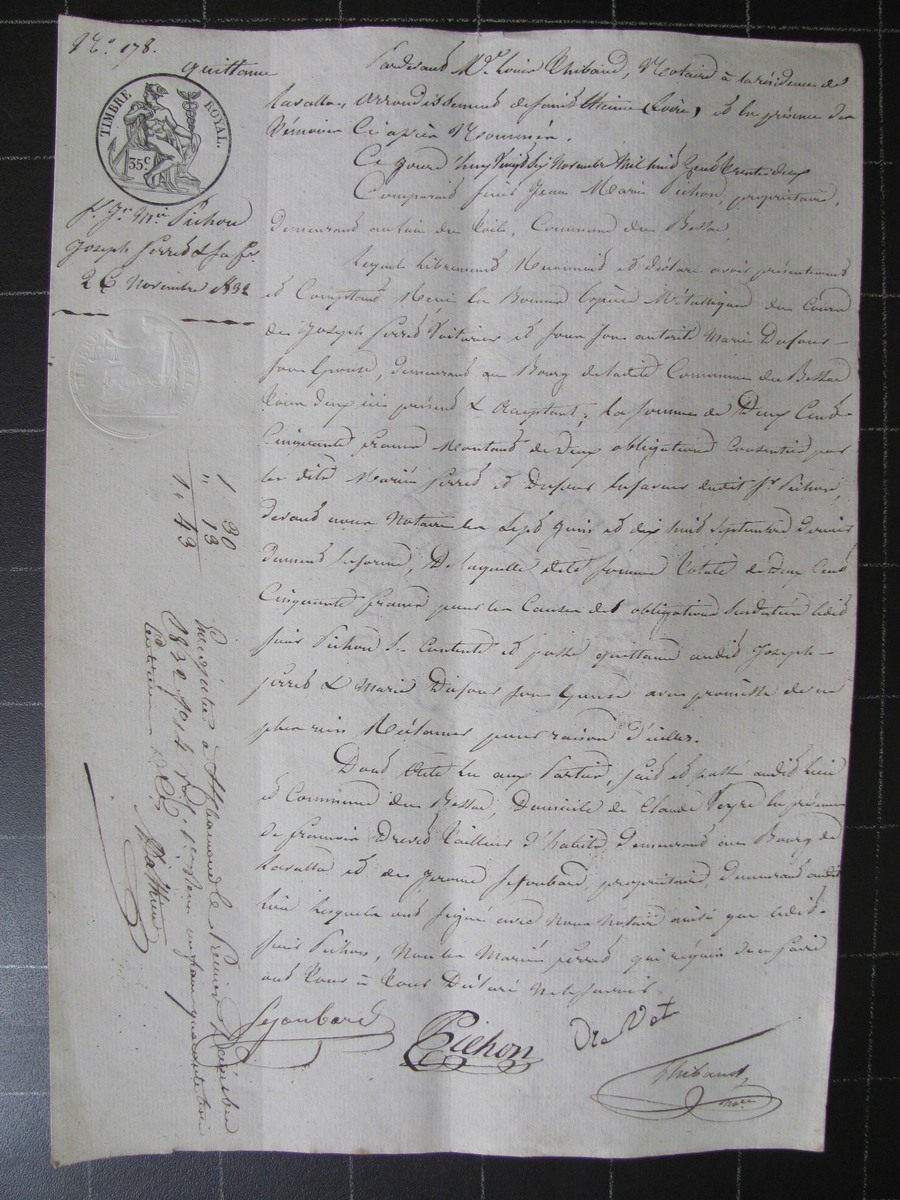 N.o 178.
quittance
TIMBRE ROYAL.
35 c
Sr. Jn. Mie Pichon
Joseph Serre & sa fe.
26 Novembre 1832
Pardevant Me. Louis Thibaud, Notaire à la résidence de
Lavalla, arrondissement de Saint Etienne (Loire), et en présence des
témoins ci après Nommés.
Ce jourd'huy Vingt Six Novembre Mil huit Cent trente deux
Comparait Sieur Jean Marie Pichon, propriétaire,
demeurant au lieu du Toil, Commune du Bessat,
Lequel librement Reconnait et déclare avoir présentement
et Comptant Recu en Bonnes Espèces Métalliques du Cours
de Joseph Serre Voiturier et sous son autorité Marie Dufour
son Epouse, demeurant au Bourg de ladite Commune du Bessat
tous deux ici présents & acceptant, la somme de Deux Cent
Cinquante francs Montant de Deux obligations Consenties par
les dits Mariés Serre et Dufour en faveur dudit Sr. Pichon,
devant nous Notaire les Sept Juin et dix huit Septembre dernier
duement en forme, De laquelle dite somme totale de Deux Cent
Cinquante francs pour les Causes des obligations Susdatées ledit
Sieur Pichon Se Contente et passe quittance audit Joseph
Serre & Marie Dufour son Epouse avec promesse de ne
plus rien Réclamer pour raison d'icelles.
Dont Acte lu aux Parties, fait et passé audit lieu
et Commune du Bessat, Domicile de Claude Teyre en présence
de francois Drevet Tailleur d'habits demeurant au Bourg de
Lavalla et de Jerome Sejoubard, propriétaire, demeurant audit
lieu lesquels ont signé avec Nous Notaire ainsi que ledit
Sieur Pichon, Non les Mariés Serre qui réquis de ce faire
ont tous à tous Déclaré ne le Savoir.
Sejoubard
Pichon
Drevet
Thibaud, nore
1 30
" 13
1 " 43
Enregistré à St Chamond le Premier Décembre
1832 fo 14 Ro C. Reçu un franc quarante trois
centimes